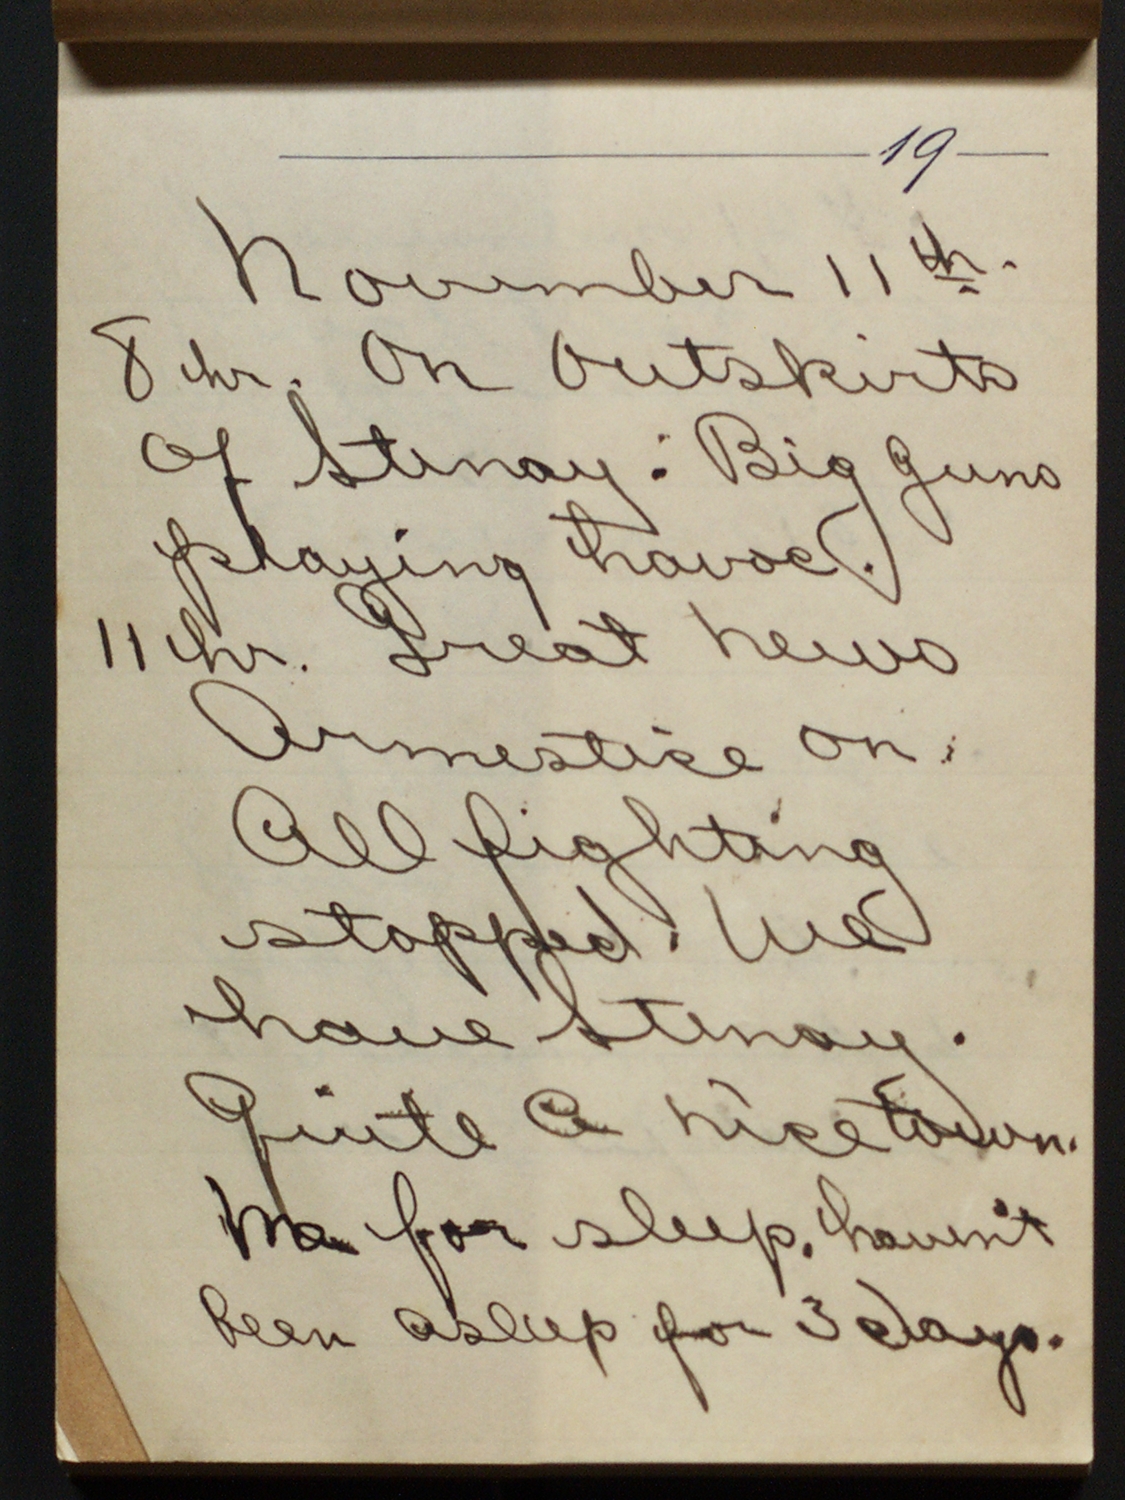 19
November 11th.
8 hr. On Outskirts
Of Stenay: Big guns
playing havoc.
11 hr. Great news
Armestice on:
All fighting
stopped: We
have Stenay.
Quite a nice town.
Me for sleep. haven't
been asleep for 3 days.